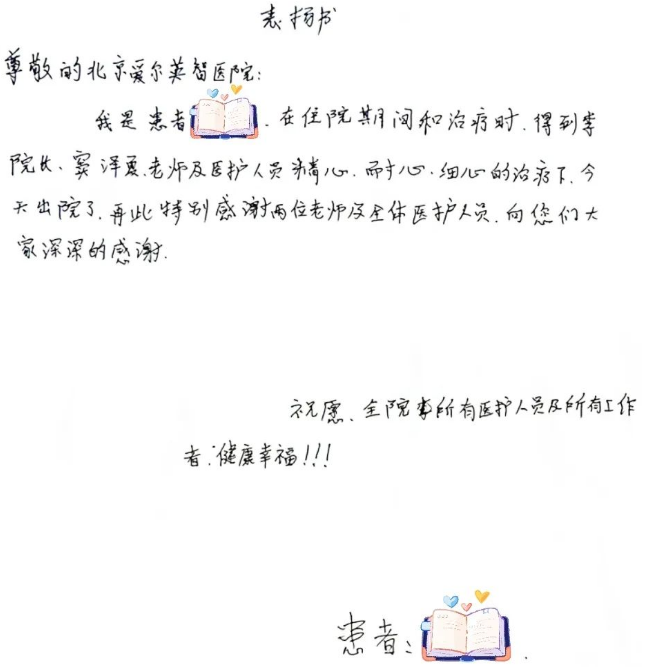 表扬书
尊敬的北京爱尔英智医院:
我是患者. 在住院期间和治疗时. 得到李
院长、窦泽夏.老师及医护人员精心.耐心.细心的治疗下.今
天出院了.再此特别感谢两位老师及全体医护人员.向您们大
家深深的感谢.
祝愿、全院所有医护人员及所有工作
者:健康幸福!!!
患者: